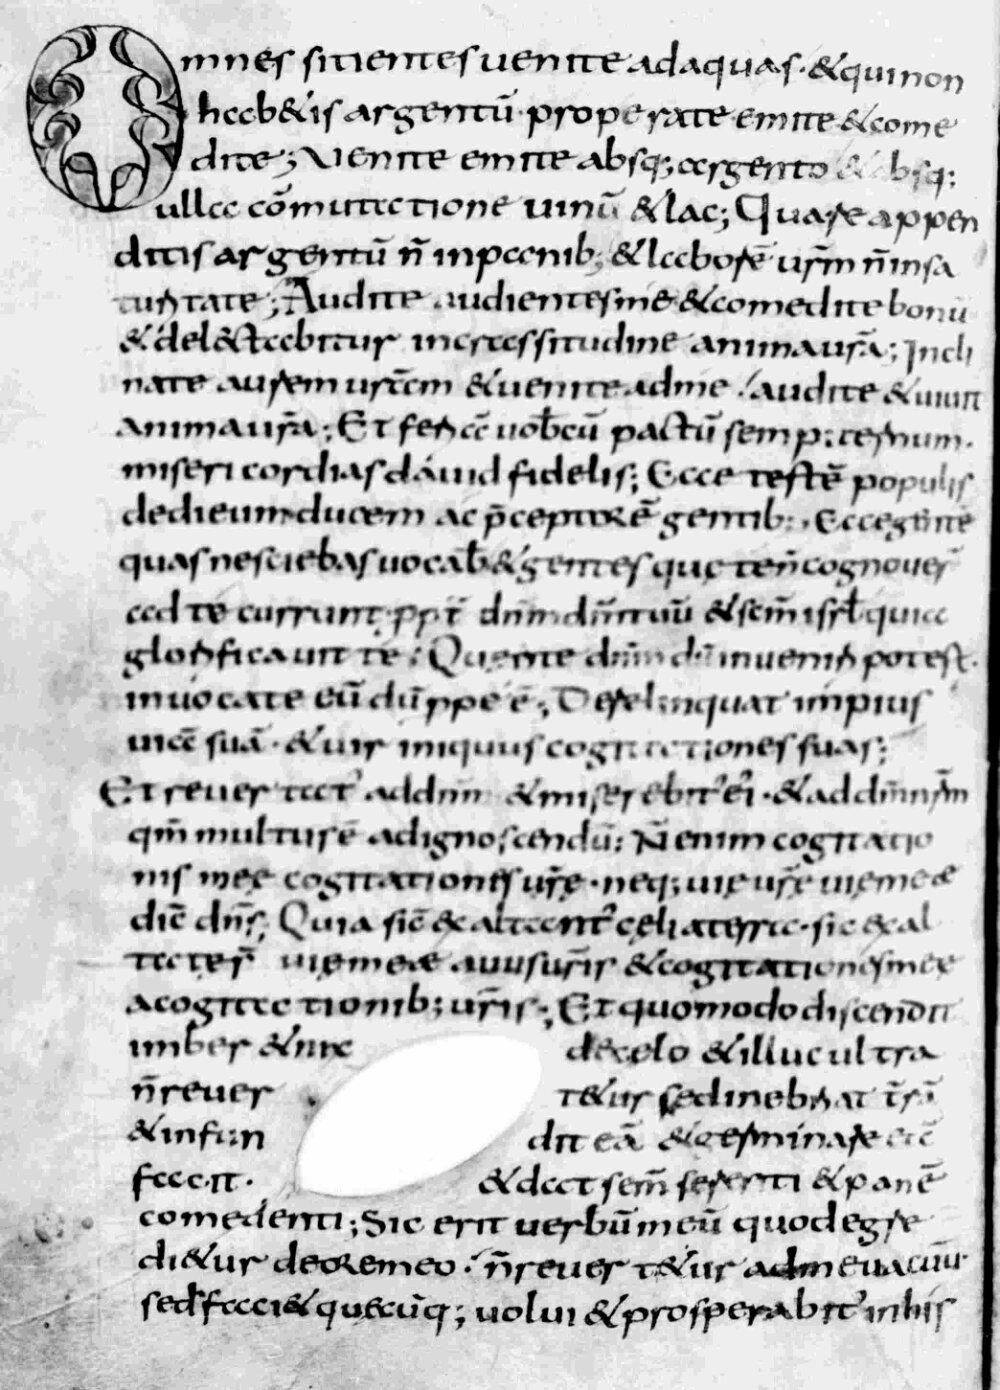 Omnes sitientes uenite adaquas · & quinon
hab&is argentū · properate emite & come
dite; Venite emite absq; argento & absq;
ulla cōmutatione uinū & lac; Quare appen
ditis argentū n̄ inpanib; & laborē ur̄m n̄insa
turitate; Audite audientesme & comedite bonū
& del&tabitur incrassitudine animaur̄a; Incli
nate aurem urām & uenite adme · audite & uiuit
animaur̄a; Et feriā uob̄cū pactū semp̱iternum ·
misericordias dauid fidelis; Ecce testē populis
dedieum · ducem ac p̄ceptorē gentib; · Ecce gentē
quas nesciebas uocab̄ & gentes que ten̄cognouer̄
ad te current · ppt̄ dnm̄ dm̄ tuū & scm̄ isrl̄ quia
glorificauit te; Querite dnm̄ dū inueniri potest ·
inuocate eū dū ppe ē; Derelinquat impius
uiā suā · & uir iniquus cogitationes suas;
Et reuertat' addnm̄ & miserebit' ei' · & ad dm̄ nr̄m
qm̄ multus ē adignoscendū; N̄ enim cogitatio
nis meę cogitationes ur̄ę · neq; uię ur̄ę uię meæ
dic̄ dn̄s; Quia sic̄ exaltant' cęli aterra · sic exal
tate s̄ uię meæ auusur̄ir & cogitationes meę
acogitationib; ur̄is; Et quomodo discendit
imber & nix decelo & illuc ultra
n̄reuer t&ur sed inebriat t̄rā
& infun dit eā & germinare eā
facit · & dat sem̄ serenti & panē
comedenti; Sic erit uerbū meū quod egre
di&ur deoremeo · n̄reuer t&ur adme uacuū
sed faci& quecūq; uolui & prosperabit' inhis